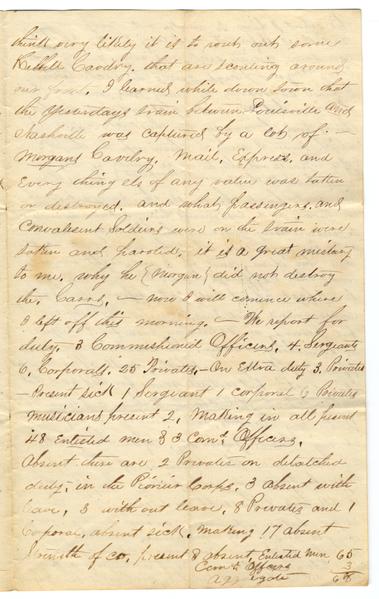 think very likely it is to routt out some
Rebbell Cavdry. that are scouting around
our front. I learned while down town that
the Yesterdays train between Louisville and
Nashville was captured by a lot of –
Morgans Cavelry. Mail, Express, and
Every thing els of any value was taken
or destroyed. and what passengers. and
Convalesent Soldiers were on the train were
taken and paroled. it is a great mistery
to me. why he (Morgan) did not destroy
the, Carrs. – now I will comence where
I left off this morning. – We report for
duty. 3 Commishioned Officers, 4. Sergeants
6, Corporals. 25 Privates, – On Extra duty 3. Privates
– Present sick 1 Sergeant 1 corporal Privates
musicians present 2, Making in all present
48 Enlisted men & 3 Com.d Officers,
Absent there are 2 Privates on detatched
duty. in the Pionier Corps. 3 absent with
Leave, 3 with out leave, 8 Privates and 1
Corporal, absent sick. Making 17 absent
Strenth of co. present & absent, Enlisted Men 65
Com.d Officers 3
68